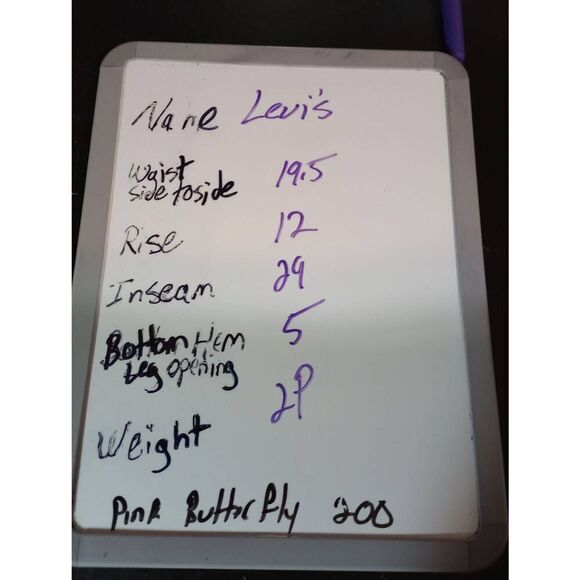 Name Levi's
Waist 19.5
side to side
Rise 12
Inseam 29
Bottom Hem 5
Leg opening
Weight 2P
Pink Butterfly 200